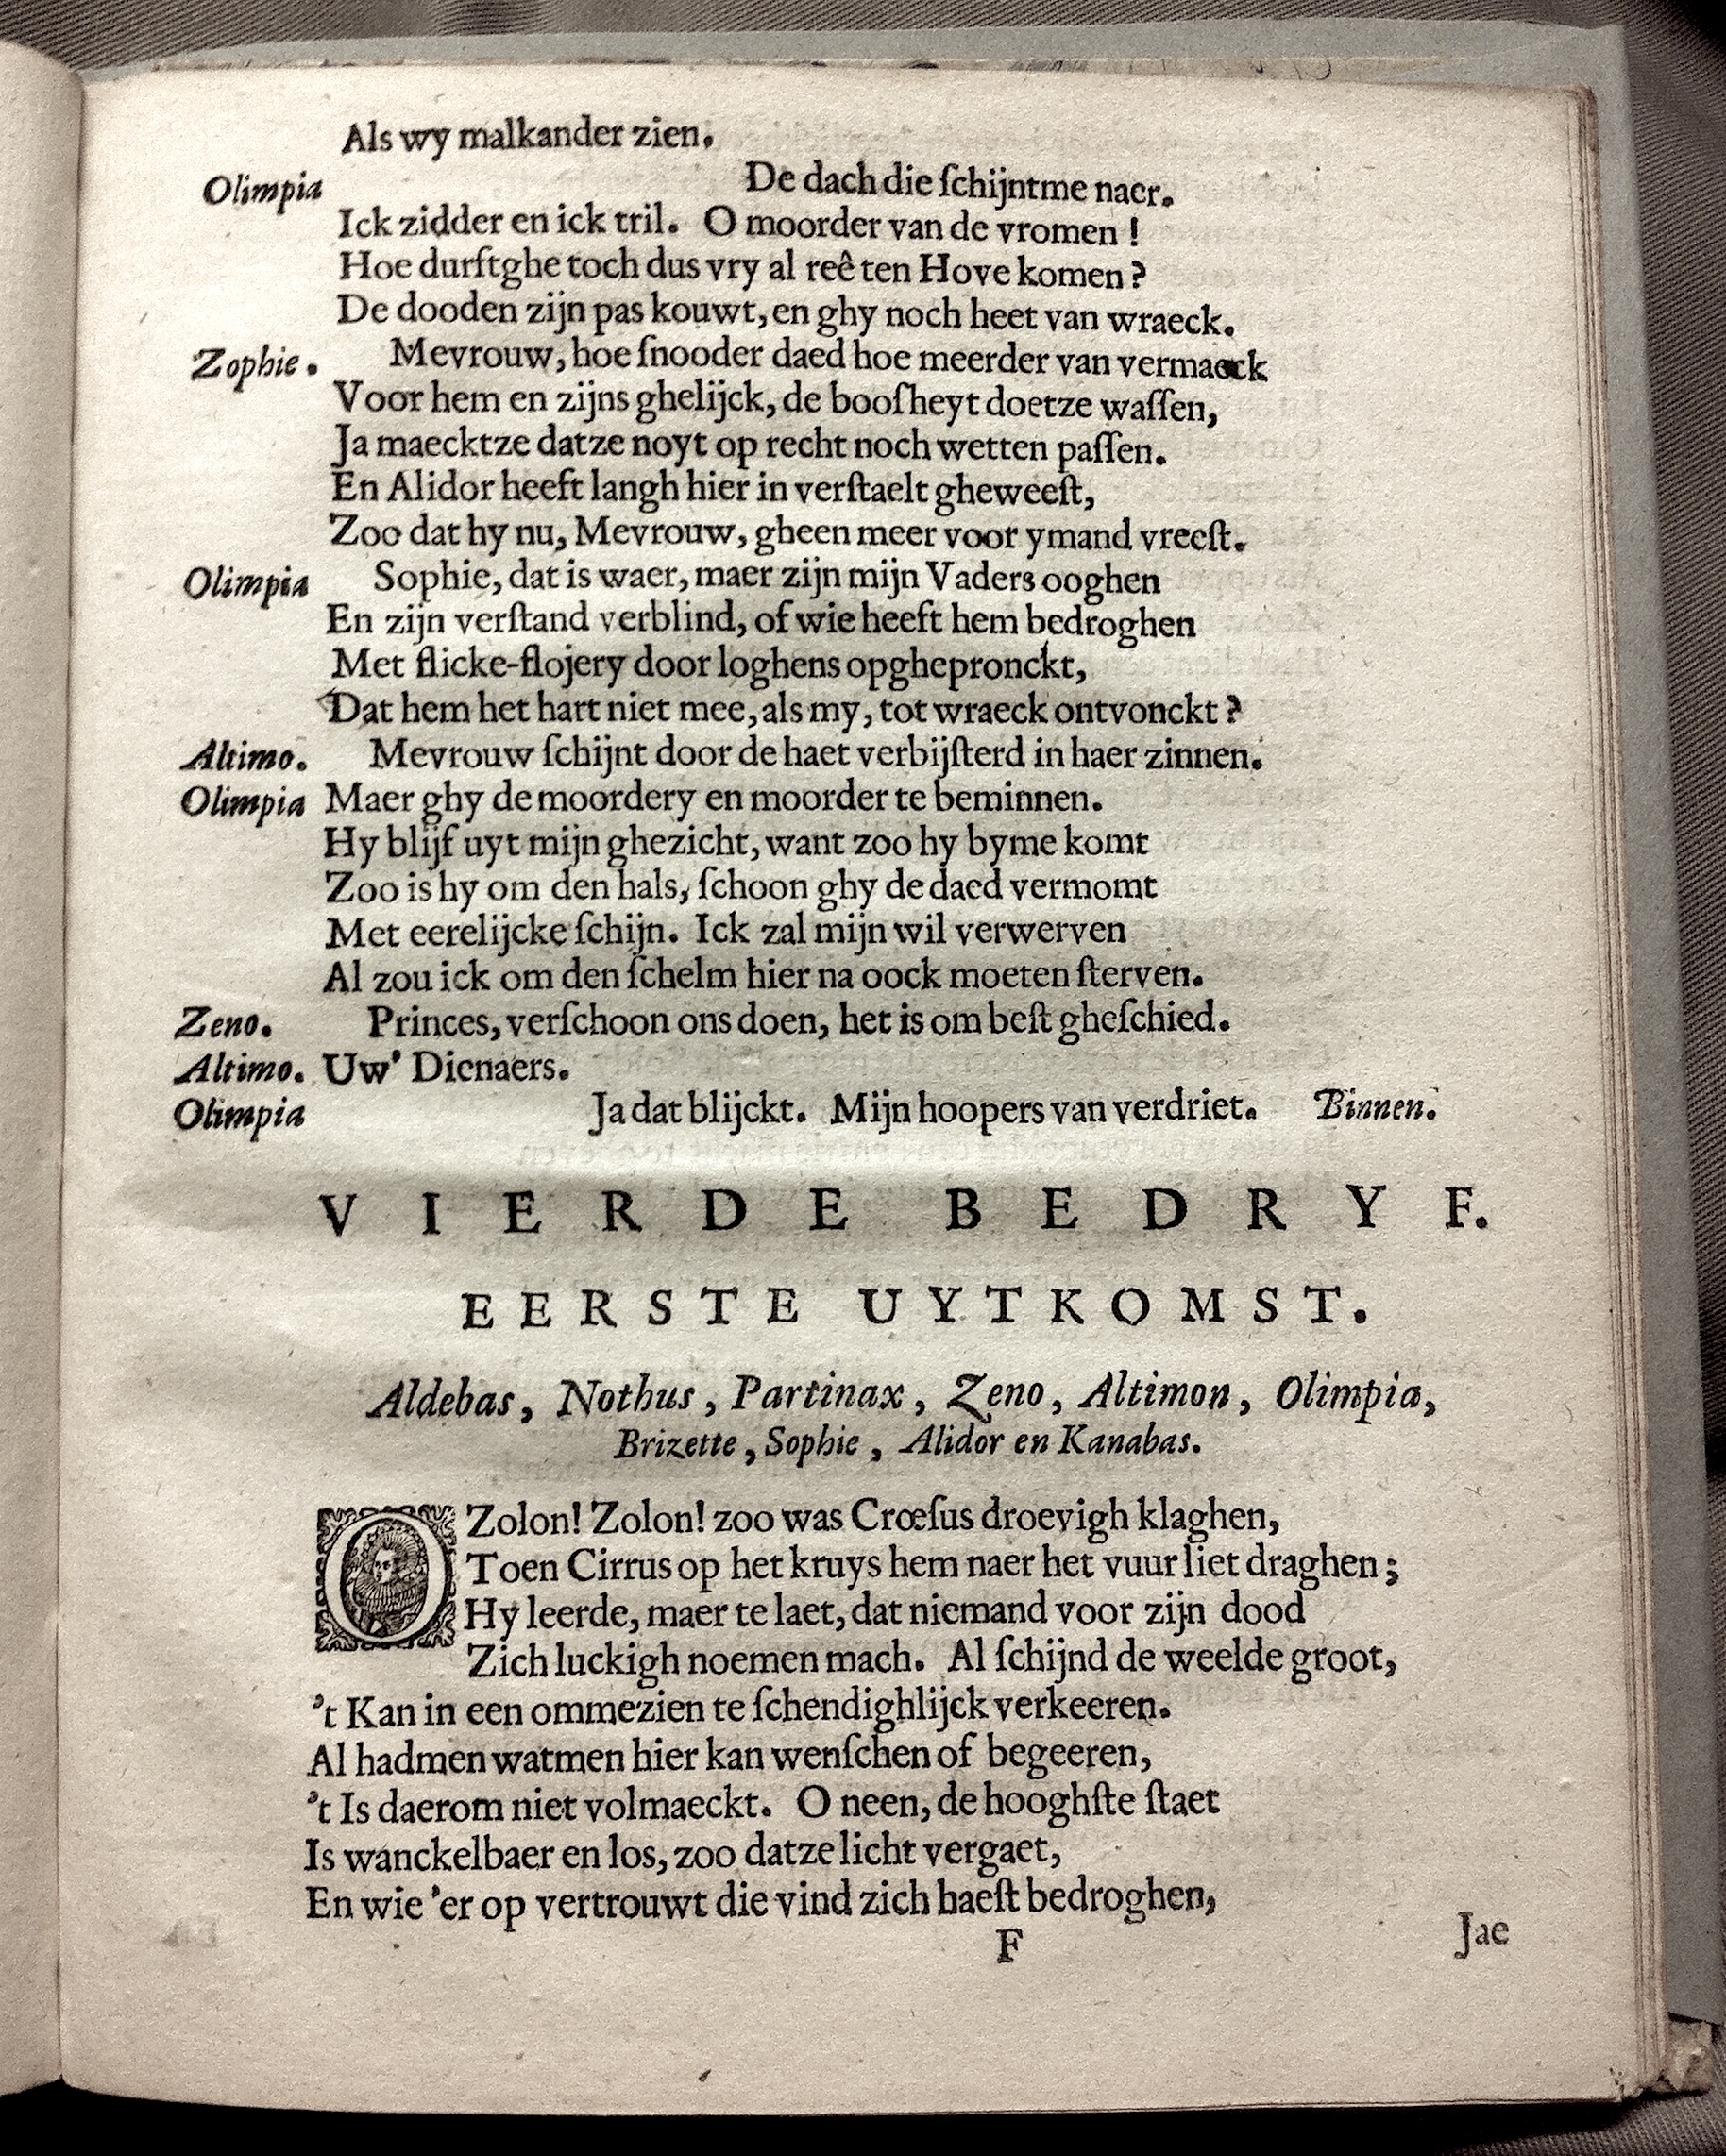 Als wy malkander zien.
Olimpia De dach die ſchijntme naer.
Ick zidder en ick tril. O moorder van de vromen !
Hoe durſtghe toch dus vry al reê ten Hove komen ?
De dooden zijn pas kouwt, en ghy noch heet van wraeck.
Zophie. Mevrouw, hoe ſnooder daed hoe meerder van vermaeck
Voor hem en zijns ghelijck, de booſheyt doetze waſſen,
Ja maecktze datze noyt op recht noch wetten paſſen.
En Alidor heeft langh hier in verſtaelt gheweeſt,
Zoo dat hy nu, Mevrouw, gheen meer voor ymand vreeſt.
Olimpia Sophie, dat is waer, maer zijn mijn Vaders ooghen
En zijn verſtand verblind, of wie heeft hem bedroghen
Met flicke-flojery door loghens opghepronckt,
Dat hem het hart niet mee, als my, tot wraeck ontvonckt ?
Altimo. Mevrouw ſchijnt door de haet verbijſterd in haer zinnen.
Olimpia Maer ghy de moordery en moorder te beminnen.
Hy blijf uyt mijn ghezicht, want zoo hy byme komt
Zoo is hy om den hals, ſchoon ghy de daed vermomt
Met eerelijcke ſchijn. Ick zal mijn wil verwerven
Al zou ick om den ſchelm hier na oock moeten ſterven.
Zeno. Princes, verſchoon ons doen, het is om beſt gheſchied.
Altimo. Uw' Dienaers.
Olimpia Ja dat blijckt. Mijn hoopers van verdriet. Binnen.
VIERDE BEDRYF.
EERSTE UYTKOMST.
Aldebas, Nothus, Partinax, Zeno, Altimon, Olimpia,
Brizette, Sophie, Alidor en Kanabas.
O Zolon! Zolon! zoo was Crœſus droevigh klaghen,
Toen Cirrus op het kruys hem naer het vuur liet draghen ;
Hy leerde, maer te laet, dat niemand voor zijn dood
Zich luckigh noemen mach. Al ſchijnd de weelde groot,
't Kan in een ommezien te ſchendighlijck verkeeren.
Al hadmen watmen hier kan wenſchen of begeeren,
't Is daerom niet volmaeckt. O neen, de hooghſte ſtaet
Is wanckelbaer en los, zoo datze licht vergaet,
En wie 'er op vertrouwt die vind zich haeſt bedroghen,
F Jae